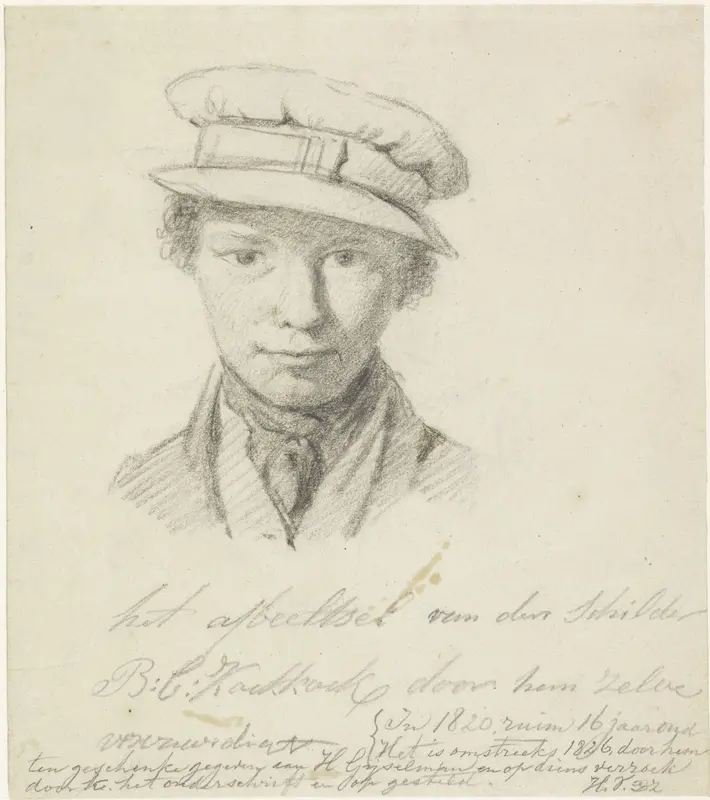 het afbeeltsel van den Schilder
B: C: Koekkoek door hem zelve
vervaerdigt
{In 1820, ruim 16 jaar oud
{Het is omstreeks 1826, door hem
ten geschenke gegeven aan H. Gijselman en op diens verzoek
door het onderschrift en op gesteld.